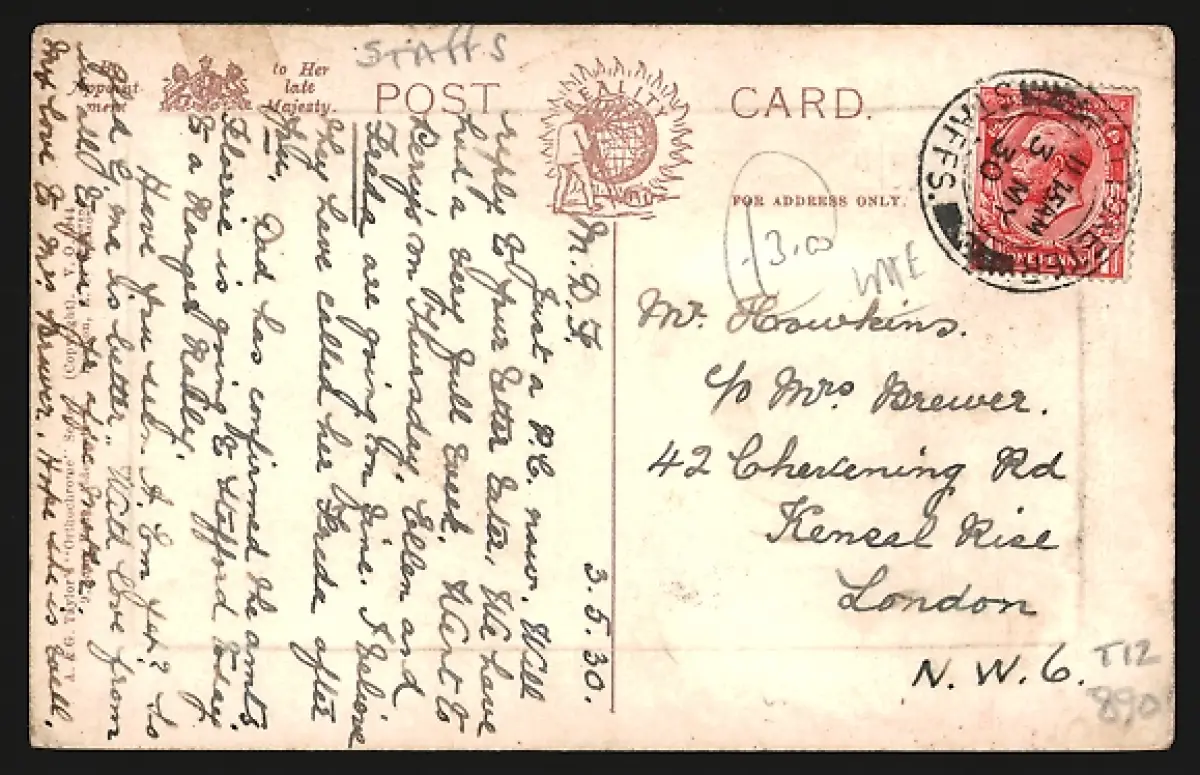 STAFFS
By Appointment
to Her
late
Majesty.
POST
CARD.
REALITY
FOR ADDRESS ONLY.
STAFFS.
11.15AM
3 MY
30
ONE PENNY
13.00
Mr. Hawkins.
c/o Mrs Brewer.
42 Chevening Rd
Kensal Rise
London
N. W. 6.
T12
890
3. 5. 30.
M. D. F.
Just a P.C. now. Will
reply to your letter later. We have
had a very full week. Went to
Derry's on Thursday. Ellen and
Freda are going on fine. I believe
they have called her Freda after
you. Dad has confirmed the amts
Florrie is going to Stafford today
to a Ranger Rally.
Have you seen A. Em yet? Is
she better. With love from
us all to
My love to Mrs Brewer. Hope she is well.